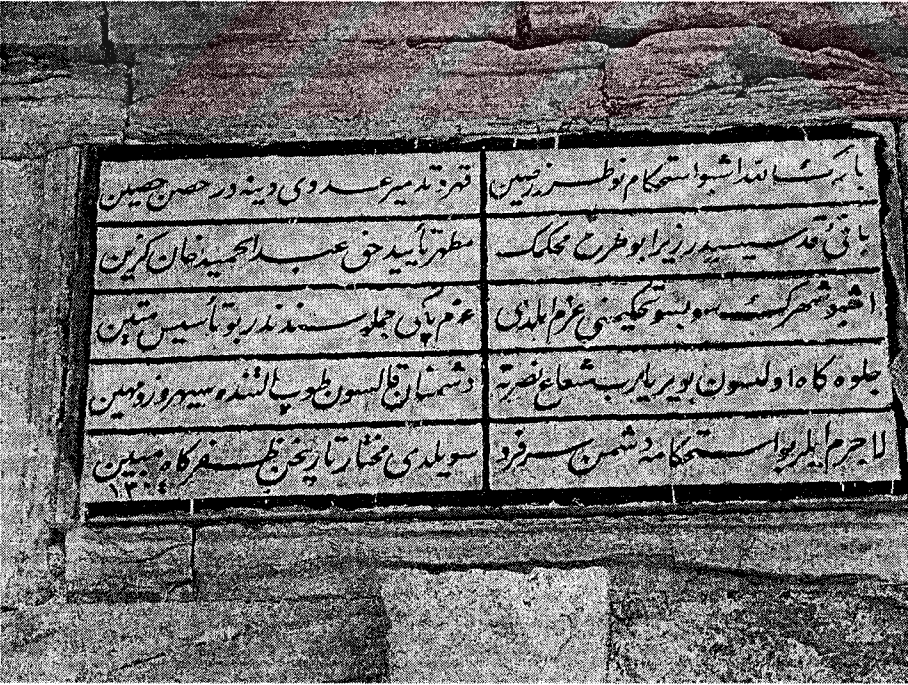 اشبو استحكام نو طرز رصين قهر و تدمير عدوى دينه در حصن حصين
بانئ قدسيسيدر زيرا بو طرح محكمك مظهر تأييد حق عبد الحميد خان كزين
اشبو شهرك سو بسو تحكيمنى عزم ايلدى عزم پاكى جمله سندندر بو تأسيس متين
جلوه كاه اولسون بو ير يا رب شعاع نصرته دشمنان قالسون طوپ التنده سيه روز و مهين
لا جرم ايلر بو استحكامه دشمن سر فرو سويلدى مختار تاريخن ظفركاه مبين